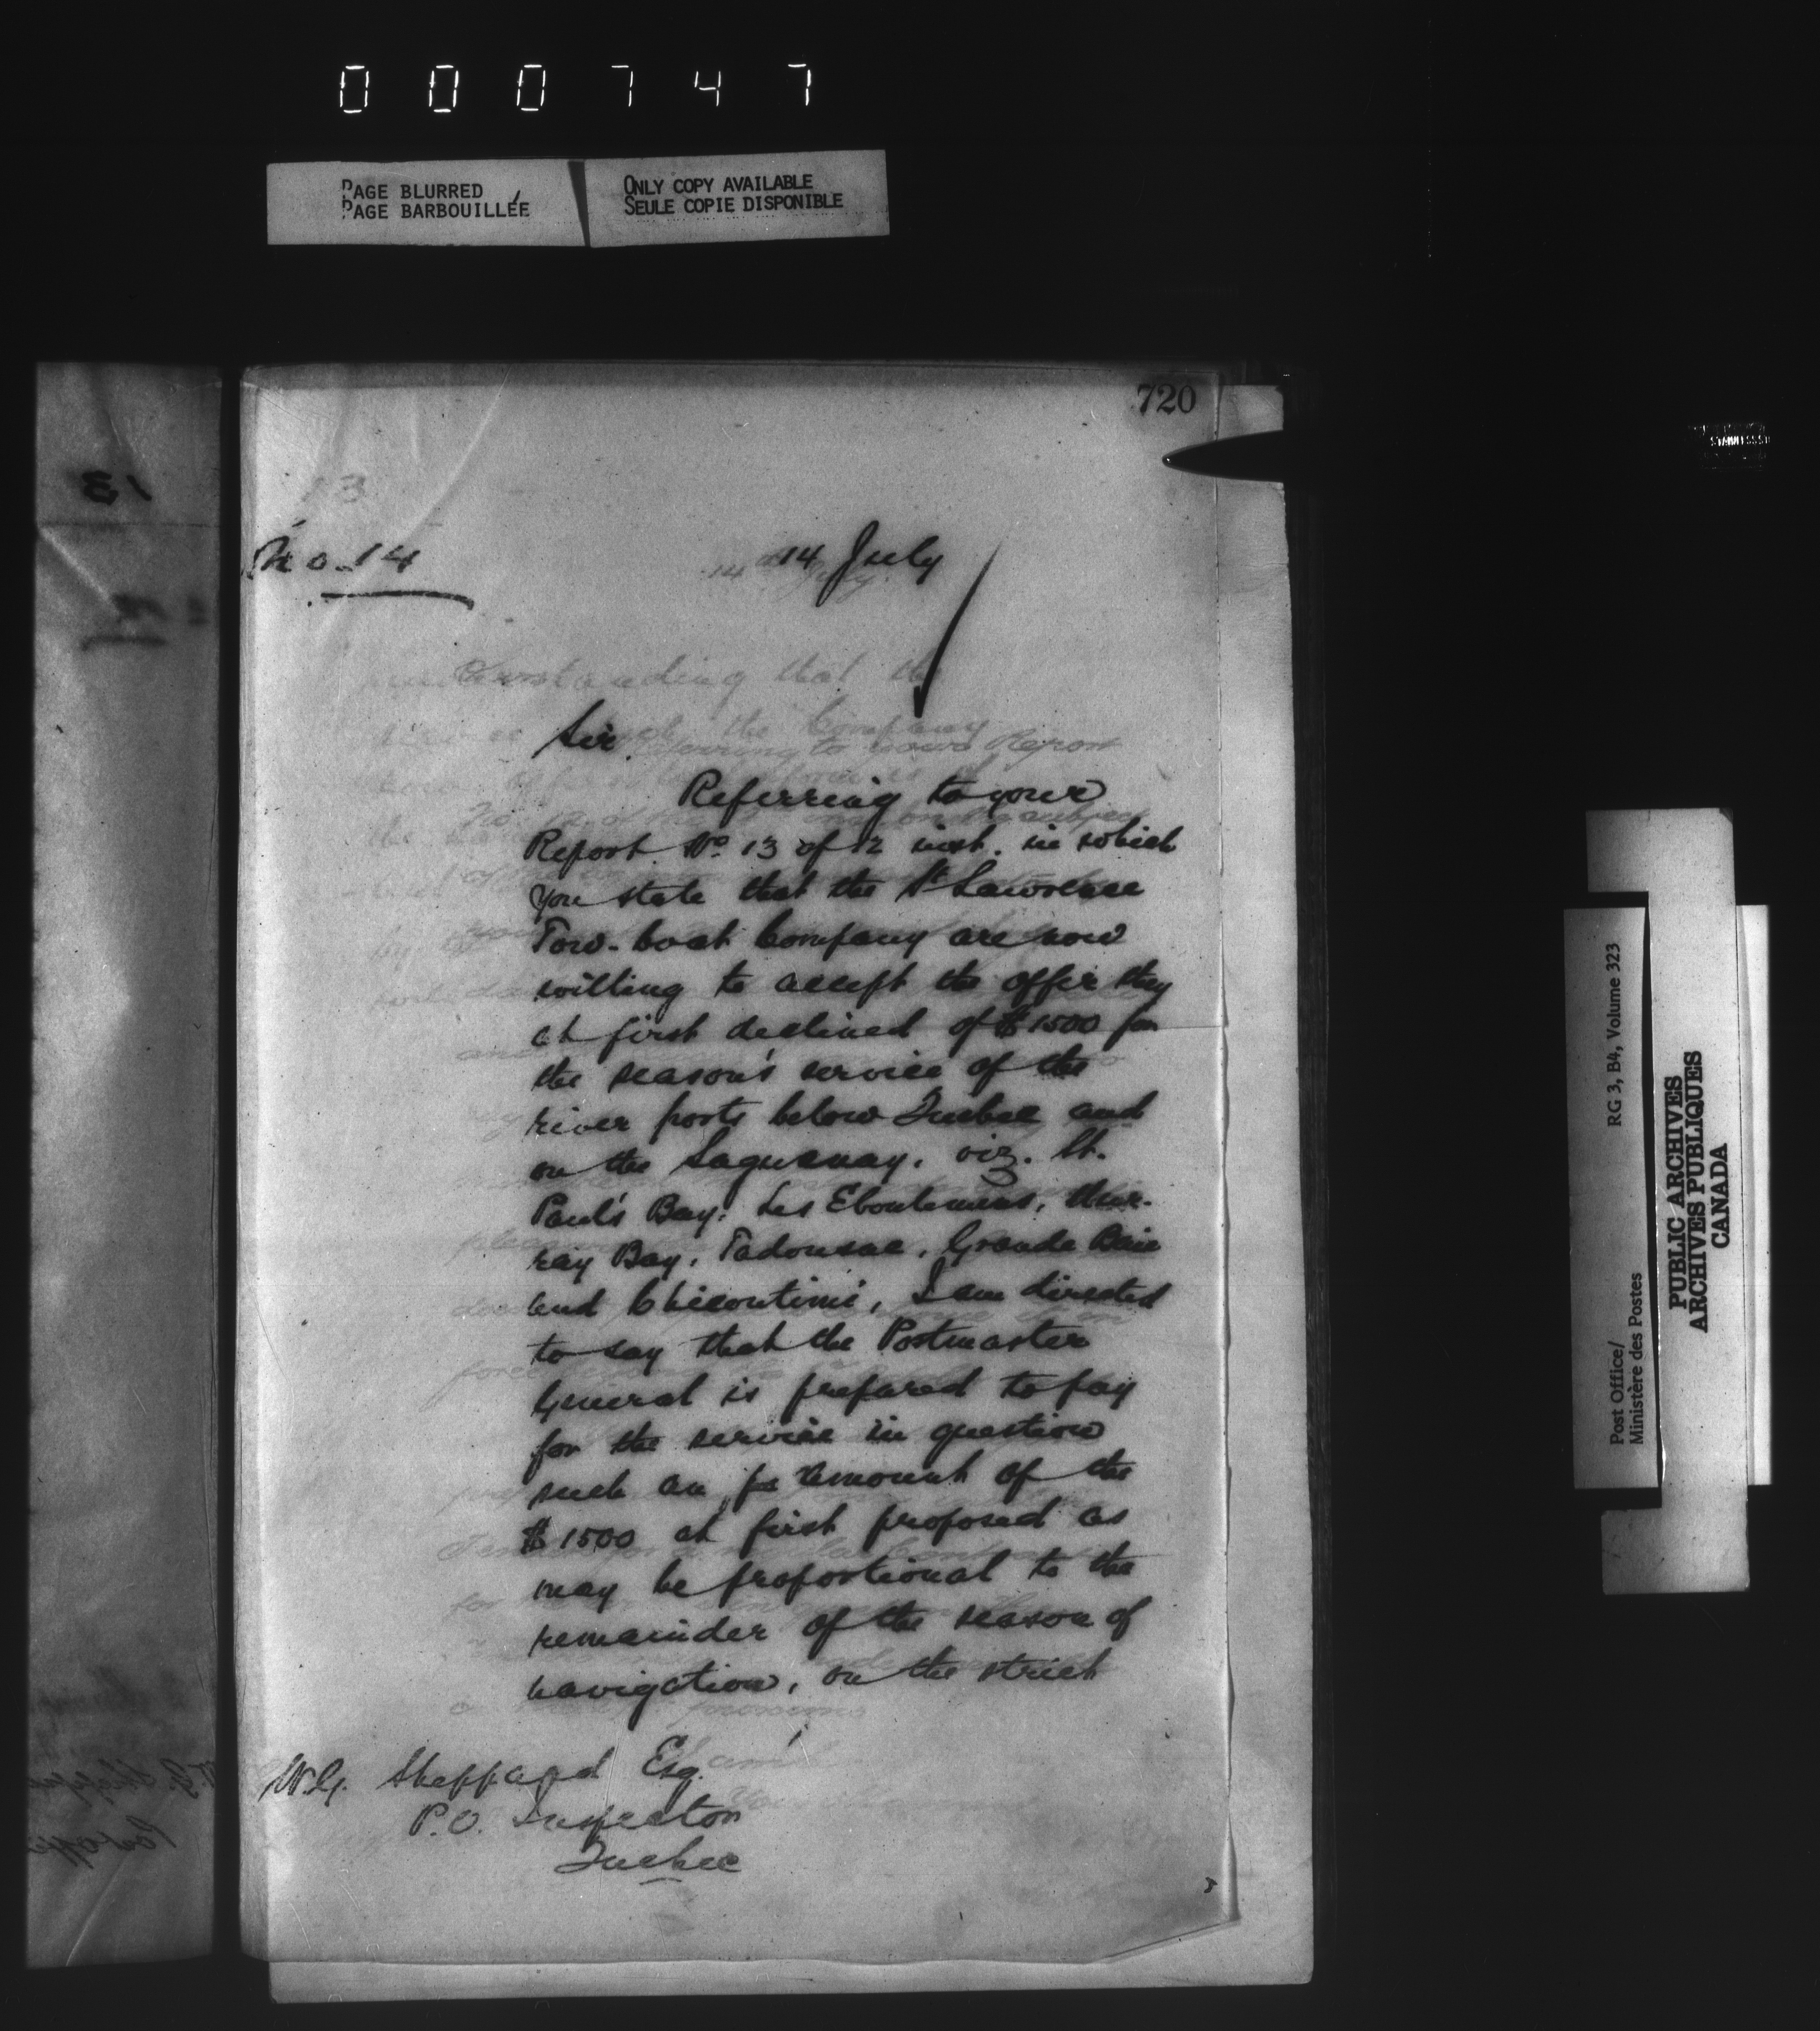 000747
PAGE BLURRED
PAGE BARBOUILLÉE
ONLY COPY AVAILABLE
SEULE COPIE DISPONIBLE
720
13
No. 14
14 July
Sir.
Referring to your
Report No. 13 of 12 inst. in which
you state that the St Lawrence
Tow-boat Company are now
willing to accept the offer they
at first declined of $1500 for
the season's service of the
river ports below Quebec and
on the Saguenay, viz. St.
Paul's Bay, Les Eboulemens, Mur-
ray Bay, Tadousac, Grande Baie
and Chicoutimi, I am directed
to say that the Postmaster
General is prepared to pay
for the service in question
such an amount of the
$1500 at first proposed as
may be proportional to the
remainder of the season of
navigation, on the strict
W.G. Sheppard Esq.
P.O. Inspector
Quebec
Post Office/
Ministère des Postes
RG 3, B4, Volume 323
PUBLIC ARCHIVES
ARCHIVES PUBLIQUES
CANADA